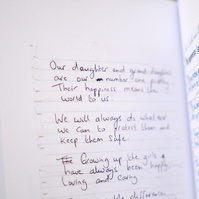 Our daughter and grand daughter
are our number one priority.
Their happiness means the
world to us.
We will always do whatever
we can to protect them and
keep them safe.
Growing up the girls
have always been happy,
loving and caring